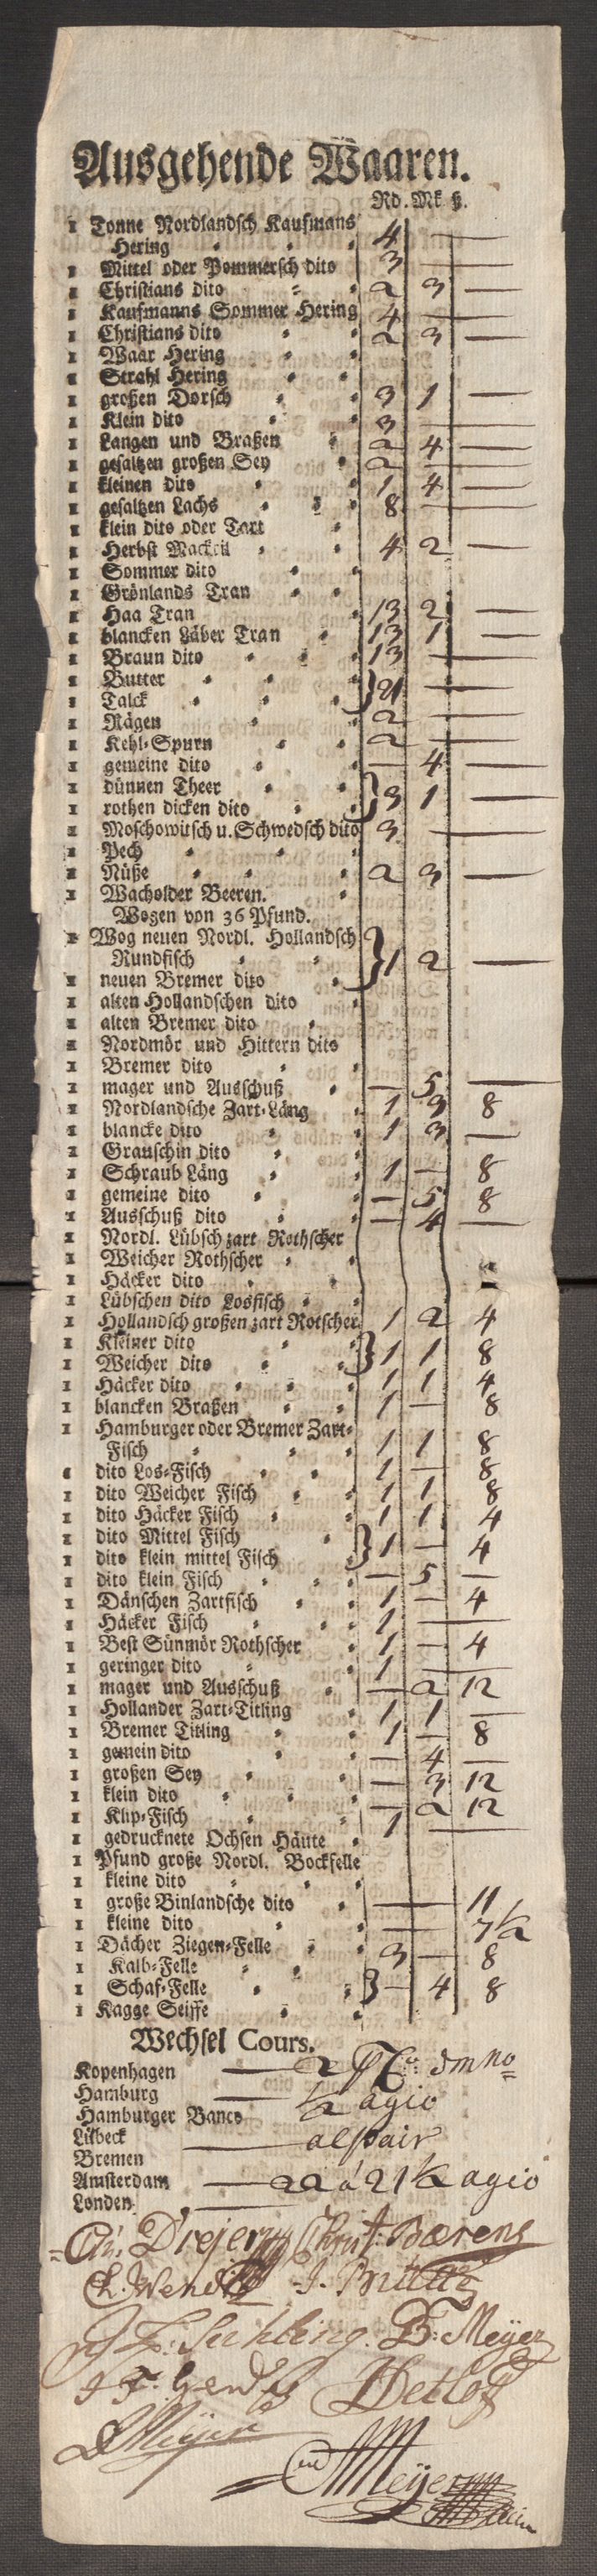 Ausgehende Waaren.
Rd. Mk ß.
1 Tonne Nordlandsch Kaufmans
Hering 4 —
1 Mittel oder Pommersch dito 3 —
1 Christians dito 2 3 —
1 Kaufmanns Sommer Hering 4 —
1 Christians dito 2 3 —
1 Waar Hering
1 Strahl Hering
1 großen Dorsch 3 1 —
1 Klein dito 3 —
1 Langen und Braßen 2 4 —
1 gesaltzen großen Sey 2 —
1 kleinen dito 1 4 —
1 gesaltzen Lachs 8 —
1 klein dito oder Tart
1 Herbst Mackeil 4 2 —
1 Sommer dito
1 Grönlands Tran
1 Haa Tran 13 2 —
1 blancken Läber Tran 13 1 —
1 Braun dito 13 —
1 Butter
1 Talck } 21 —
1 Rägen 2 —
1 Kehl-Spurn 2 —
1 gemeine dito — 4 —
1 dünnen Theer
1 rothen dicken dito } 3 1 —
1 Moschowitsch u. Schwedsch dito 3 —
1 Pech
1 Nüße 2 3 —
1 Wacholder Beeren.
Wogen von 36 Pfund.
1 Wog neuen Nordl. Hollandsch
Rundfisch
1 neuen Bremer dito } 1 2 —
1 alten Hollandschen dito
1 alten Bremer dito
1 Nordmör und Hittern dito
1 Bremer dito
1 mager und Ausschuß — 5 —
1 Nordlandsche Zart-Läng 1 3 8
1 blancke dito 1 3 —
1 Grauschin dito
1 Schraub Läng 1 — 8
1 gemeine dito — 5 8
1 Ausschuß dito — 4 —
1 Nordl. Lübsch zart Rothscher
1 Weicher Rothscher
1 Häcker dito
1 Lübschen dito Losfisch
1 Hollandsch großen zart Rotscher 1 2 4
1 Kleiner dito
1 Weicher dito } 1 1 8
1 Häcker dito 1 1 4
1 blancken Braßen 1 — 8
1 Hamburger oder Bremer Zart-
Fisch 1 1 8
1 dito Los-Fisch 1 — 8
1 dito Weicher Fisch 1 1 8
1 dito Häcker Fisch 1 1 4
1 dito Mittel Fisch
1 dito klein mittel Fisch } 1 — 4
1 dito klein Fisch — 5 —
1 Dänschen Zartfisch 1 — 4
1 Häcker Fisch 1 —
1 Best Sünmör Rothscher 1 — 4
1 geringer dito 1 —
1 mager und Ausschuß — 2 12
1 Hollander Zart-Titling 1 1 —
1 Bremer Titling 1 — 8
1 gemein dito — 4 —
1 großen Sey — 3 12
1 klein dito — 2 12
1 Klip-Fisch 1 —
1 gedrucknete Ochsen Häute
1 Pfund große Nordl. Bockfelle
1 kleine dito
1 große Binlandsche dito — 11
1 kleine dito — 7½
1 Dächer Ziegen-Felle 3 — 8
1 Kalb-Felle
1 Schaf-Felle } — 4 8
1 Kagge Seiffe
Wechsel Cours.
Kopenhagen — 2
Hamburg — ½ agio
Hamburger Banco
Lübeck — alpair
Bremen
Amsterdam — 22 á 21½ agio
Londen —
Dreyer Christ: Bærens
Ch. Wendt J.
Suhling. B: Meyer
J F. Gerdes Detlof
Meÿer
Meÿer